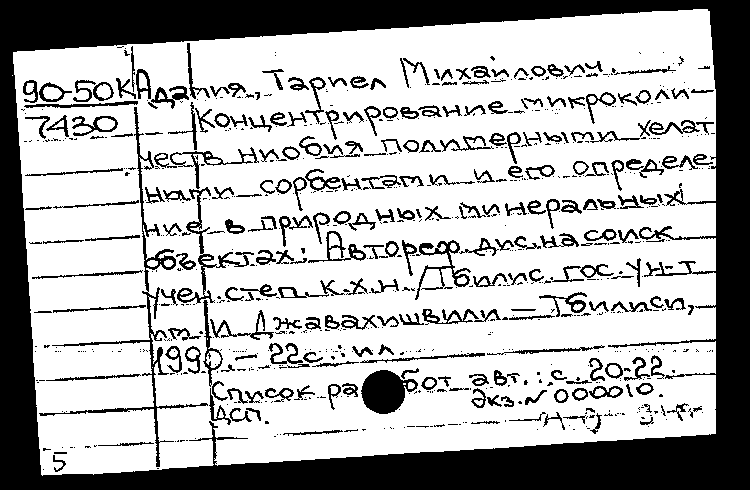 90-50К Адамия, Тариел Михайлович.
7430 Концентрирование микроколи-
честв ниобия полимерными хелат
ными сорбентами и его определе-
ние в природных минеральных
объектах: Автореф. дис. на соиск.
учен. степ. к.х.н. /Тбилис. гос. ун-т
им. И Джавахишвили. — Тбилиси,
1990. — 22с.: ил.
Список работ авт.: с. 20-22.
ДСП. Экз. N 000010.
5